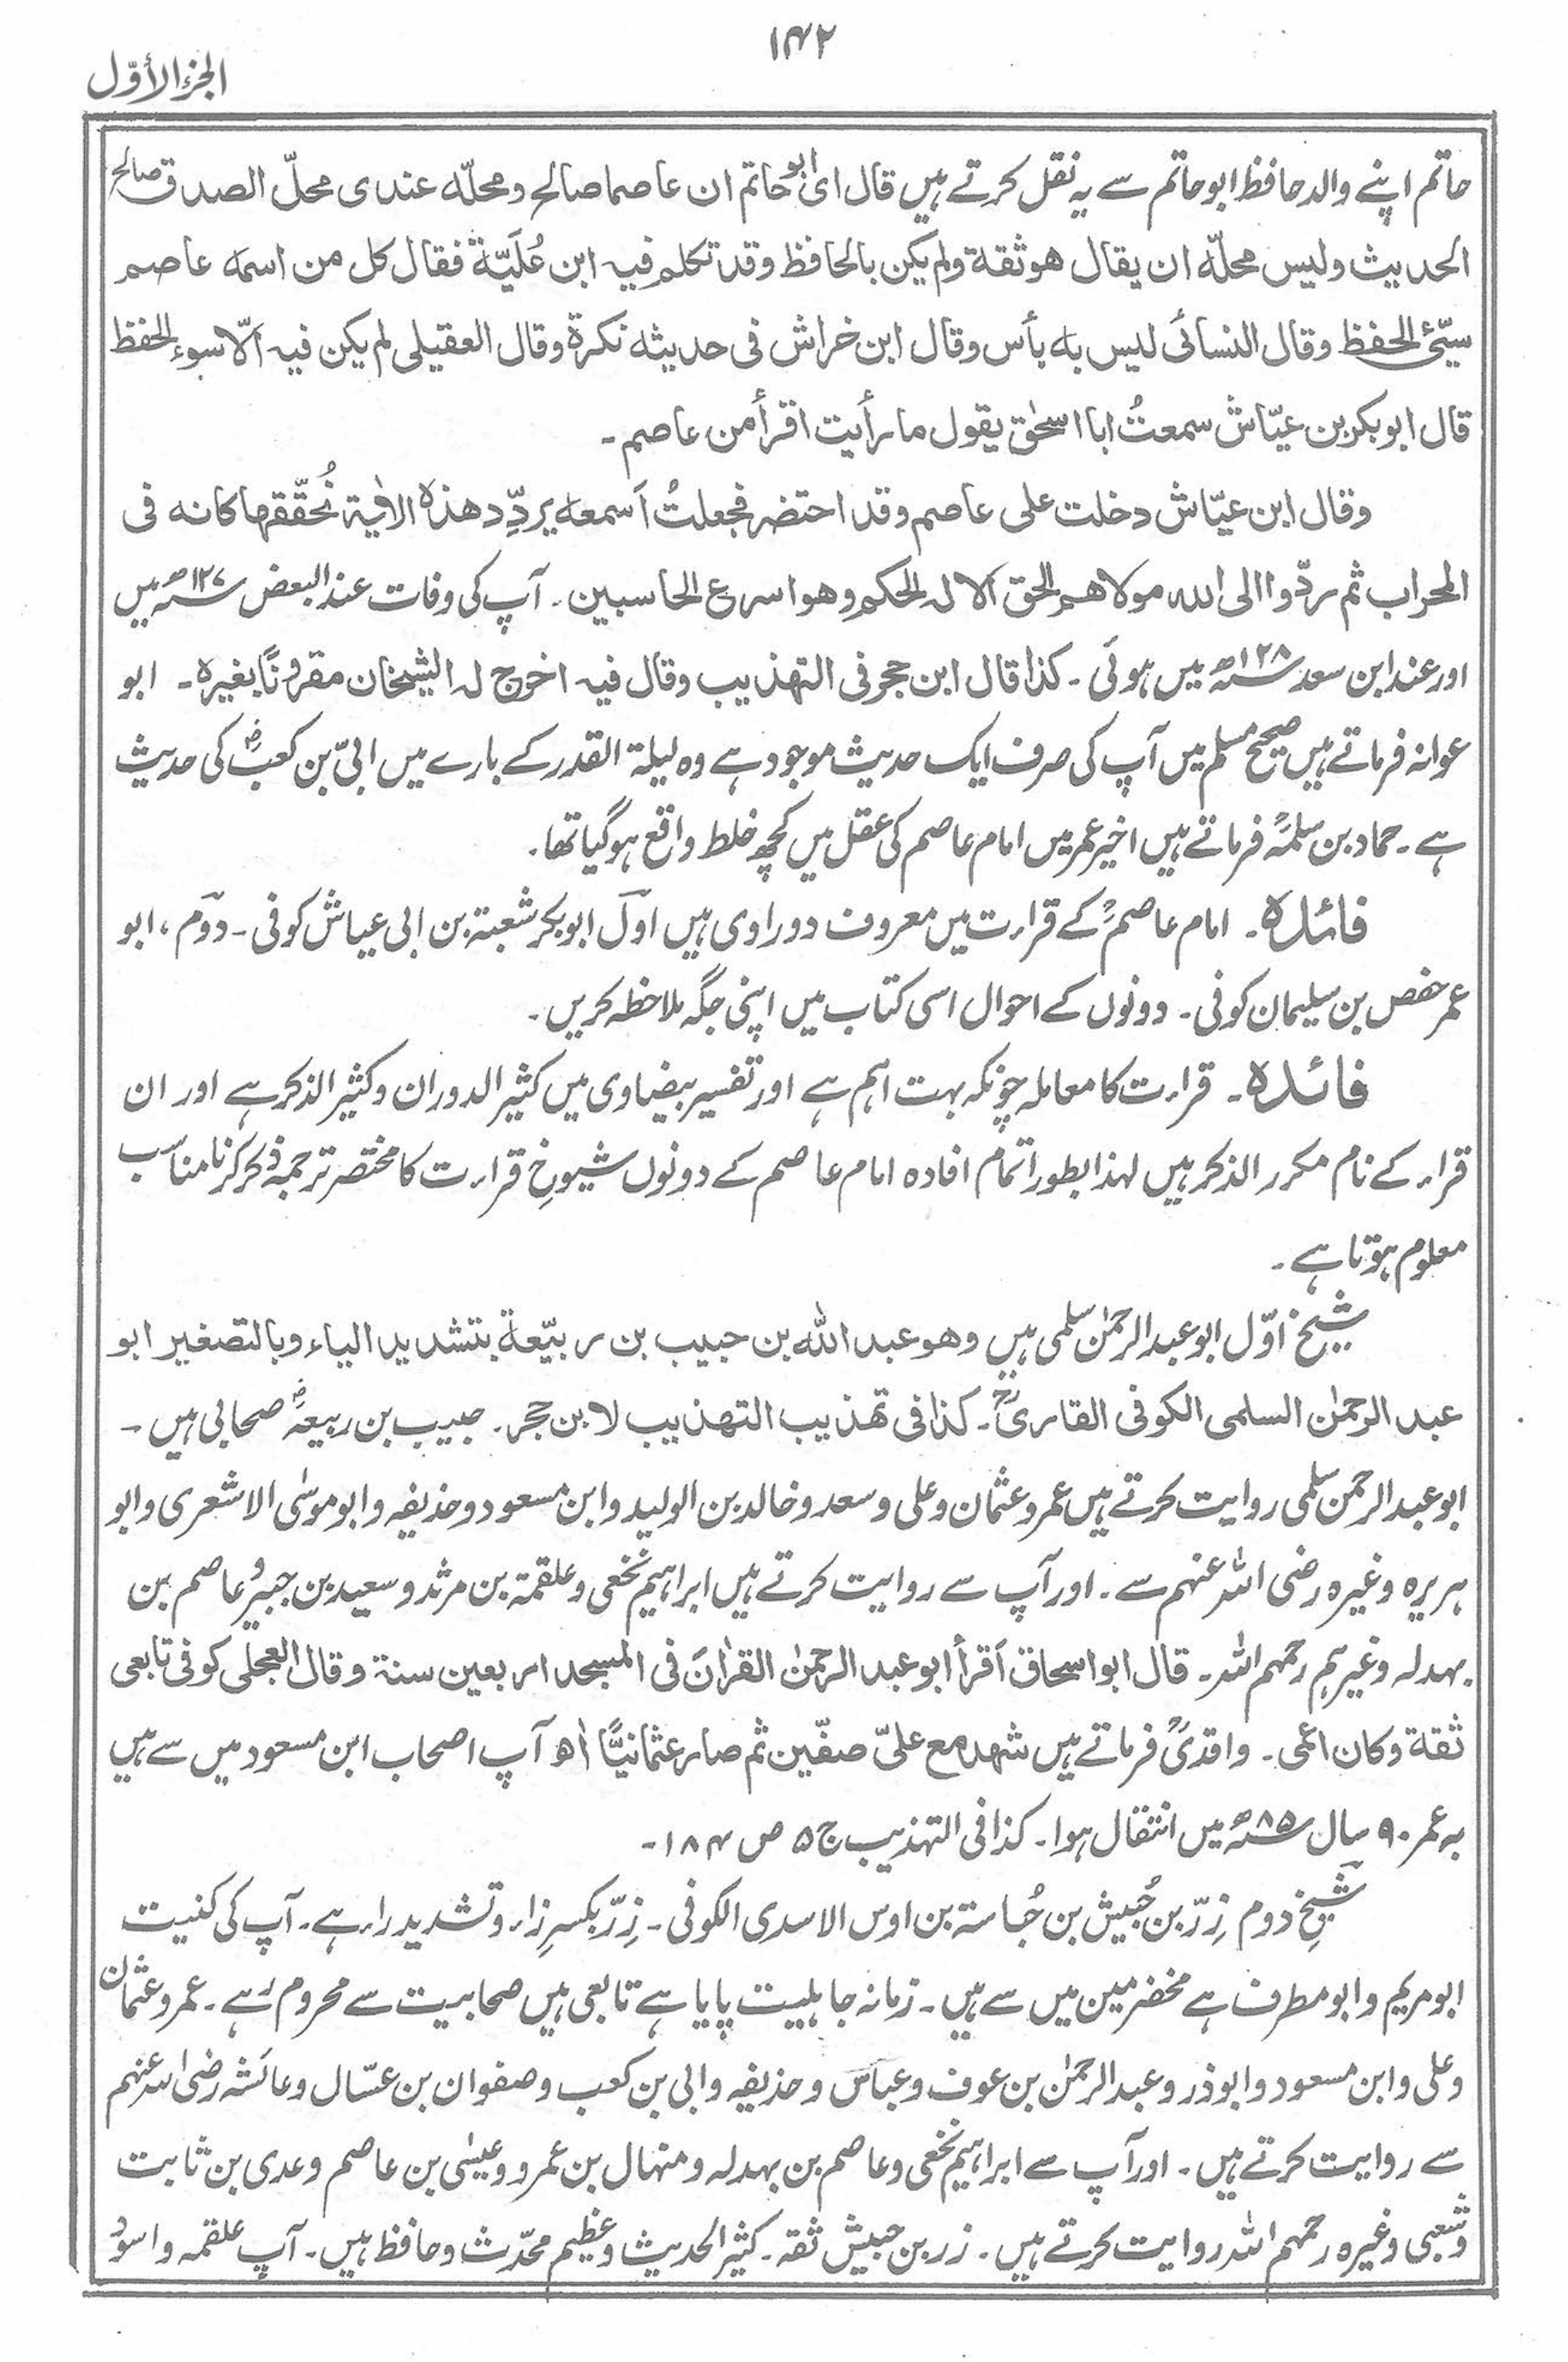 ۱۴۲
الجزء الأوّل
حاتم اپنے والد حافظ ابو حاتم سے یہ نقل کرتے ہیں قال ای ابو حاتم ان عاصما صالح ومحلّہ عندی محلّ الصدق صالح
الحدیث ولیس محلّہ ان یقال ھو ثقۃ ولم یکن بالحافظ وقد تکلم فیہ ابن عُلَیّۃ فقال کل من اسمہ عاصم
سیّئ الحفظ وقال النسائی لیس بہ بأس وقال ابن خراش فی حدیثہ نکرۃ وقال العقیلی لم یکن فیہ الّا سوء الحفظ
قال ابو بکر بن عیّاش سمعتُ ابا اسحٰق یقول ما رأیت اقرأ من عاصم۔
وقال ابن عیّاش دخلت علی عاصم وقد احتضر فجعلتُ اَسمعہ یردِّد ھذہ الاٰیۃ نُحقّقھا کانہ فی
المحراب ثم ردّوا الی اللہ مولاھم الحق الا لہ الحکم وھو اسرع الحاسبین۔ آپ کی وفات عند البعض ۱۲۷ھ میں
اور عند ابن سعد ۱۲۸ھ میں ہوئی۔ کذا قال ابن حجر فی التھذیب وقال فیہ اخرج لہ الشیخان مقرونًا بغیرہ۔ ابو
عوانہ فرماتے ہیں صحیح مسلم میں آپ کی صرف ایک حدیث موجود ہے وہ لیلۃ القدر کے بارے میں ابیّ بن کعبؓ کی حدیث
ہے۔ حماد بن سلمہؒ فرماتے ہیں اخیر عمر میں امام عاصم کی عقل میں کچھ خلط واقع ہوگیا تھا۔
فائدہ۔ امام عاصمؒ کے قراءت میں معروف دو راوی ہیں اوّل ابو بکر شعبۃ بن ابی عیاش کوفی۔ دوّم، ابو
عمر حفص بن سلیمان کوفی۔ دونوں کے احوال اسی کتاب میں اپنی جگہ ملاحظہ کریں۔
فائدہ۔ قراءت کا معاملہ چونکہ بہت اہم ہے اور تفسیر بیضاوی میں کثیر الدوران وکثیر الذکر ہے اور ان
قراء کے نام مکرر الذکر ہیں لہذا بطور اتمام افادہ امام عاصم کے دونوں شیوخِ قراءت کا مختصر ترجمہ ذکر کرنا مناسب
معلوم ہوتا ہے۔
شیخ اوّل ابو عبد الرحمٰن سلمی ہیں وھو عبد اللہ بن حبیب بن ربیّعۃ بتشدید الیاء وبالتصغیر ابو
عبد الرحمٰن السلمی الکوفی القاریؒ۔ کذا فی تھذیب التھذیب لابن حجر۔ حبیب بن ربیعہؓ صحابی ہیں۔
ابو عبد الرحمن سلمی روایت کرتے ہیں عمر و عثمان و علی و سعد و خالد بن الولید و ابن مسعود و حذیفہ و ابو موسٰی الاشعری و ابو
ہریرہ وغیرہ رضی اللہ عنہم سے۔ اور آپ سے روایت کرتے ہیں ابراہیم نخعی و علقمۃ بن مرثد و سعید بن جبیر و عاصم بن
بہدلہ وغیرہم رحمہم اللہ۔ قال ابو اسحاق اَقرأ ابو عبد الرحمٰن القراٰنَ فی المسجد اربعین سنۃ وقال العجلی کوفی تابعی
ثقۃ وکان اعمی۔ واقدیؒ فرماتے ہیں شھد مع علیّ صفّین ثم صار عثمانیًّا اھ آپ اصحاب ابن مسعود میں سے ہیں
بہ عمر ۹۰ سال ۸۵ھ میں انتقال ہوا۔ کذا فی التہذیب ج ۵ ص ۱۸۴۔
شیخِ دوم زِرّ بن حُبیش بن حُباستہ بن اوس الاسدی الکوفی۔ زِرّ بکسرِ زاء و تشدید راء ہے۔ آپ کی کنیت
ابو مریم و ابو مطرف ہے مخضرمین میں سے ہیں۔ زمانہ جاہلیت پایا ہے تابعی ہیں صحابیت سے محروم رہے۔ عمر و عثمان
و علی و ابن مسعود و ابوذر و عبد الرحمٰن بن عوف و عباس و حذیفہ و ابی بن کعب و صفوان بن عسّال و عائشہ رضی اللہ عنہم
سے روایت کرتے ہیں۔ اور آپ سے ابراہیم نخعی و عاصم بن بہدلہ و منہال بن عمرو و عیسٰی بن عاصم و عدی بن ثابت
و شعبی وغیرہ رحمہم اللہ روایت کرتے ہیں۔ زر بن حبیش ثقہ۔ کثیر الحدیث و عظیم محدّث و حافظ ہیں۔ آپ علقمہ و اسود